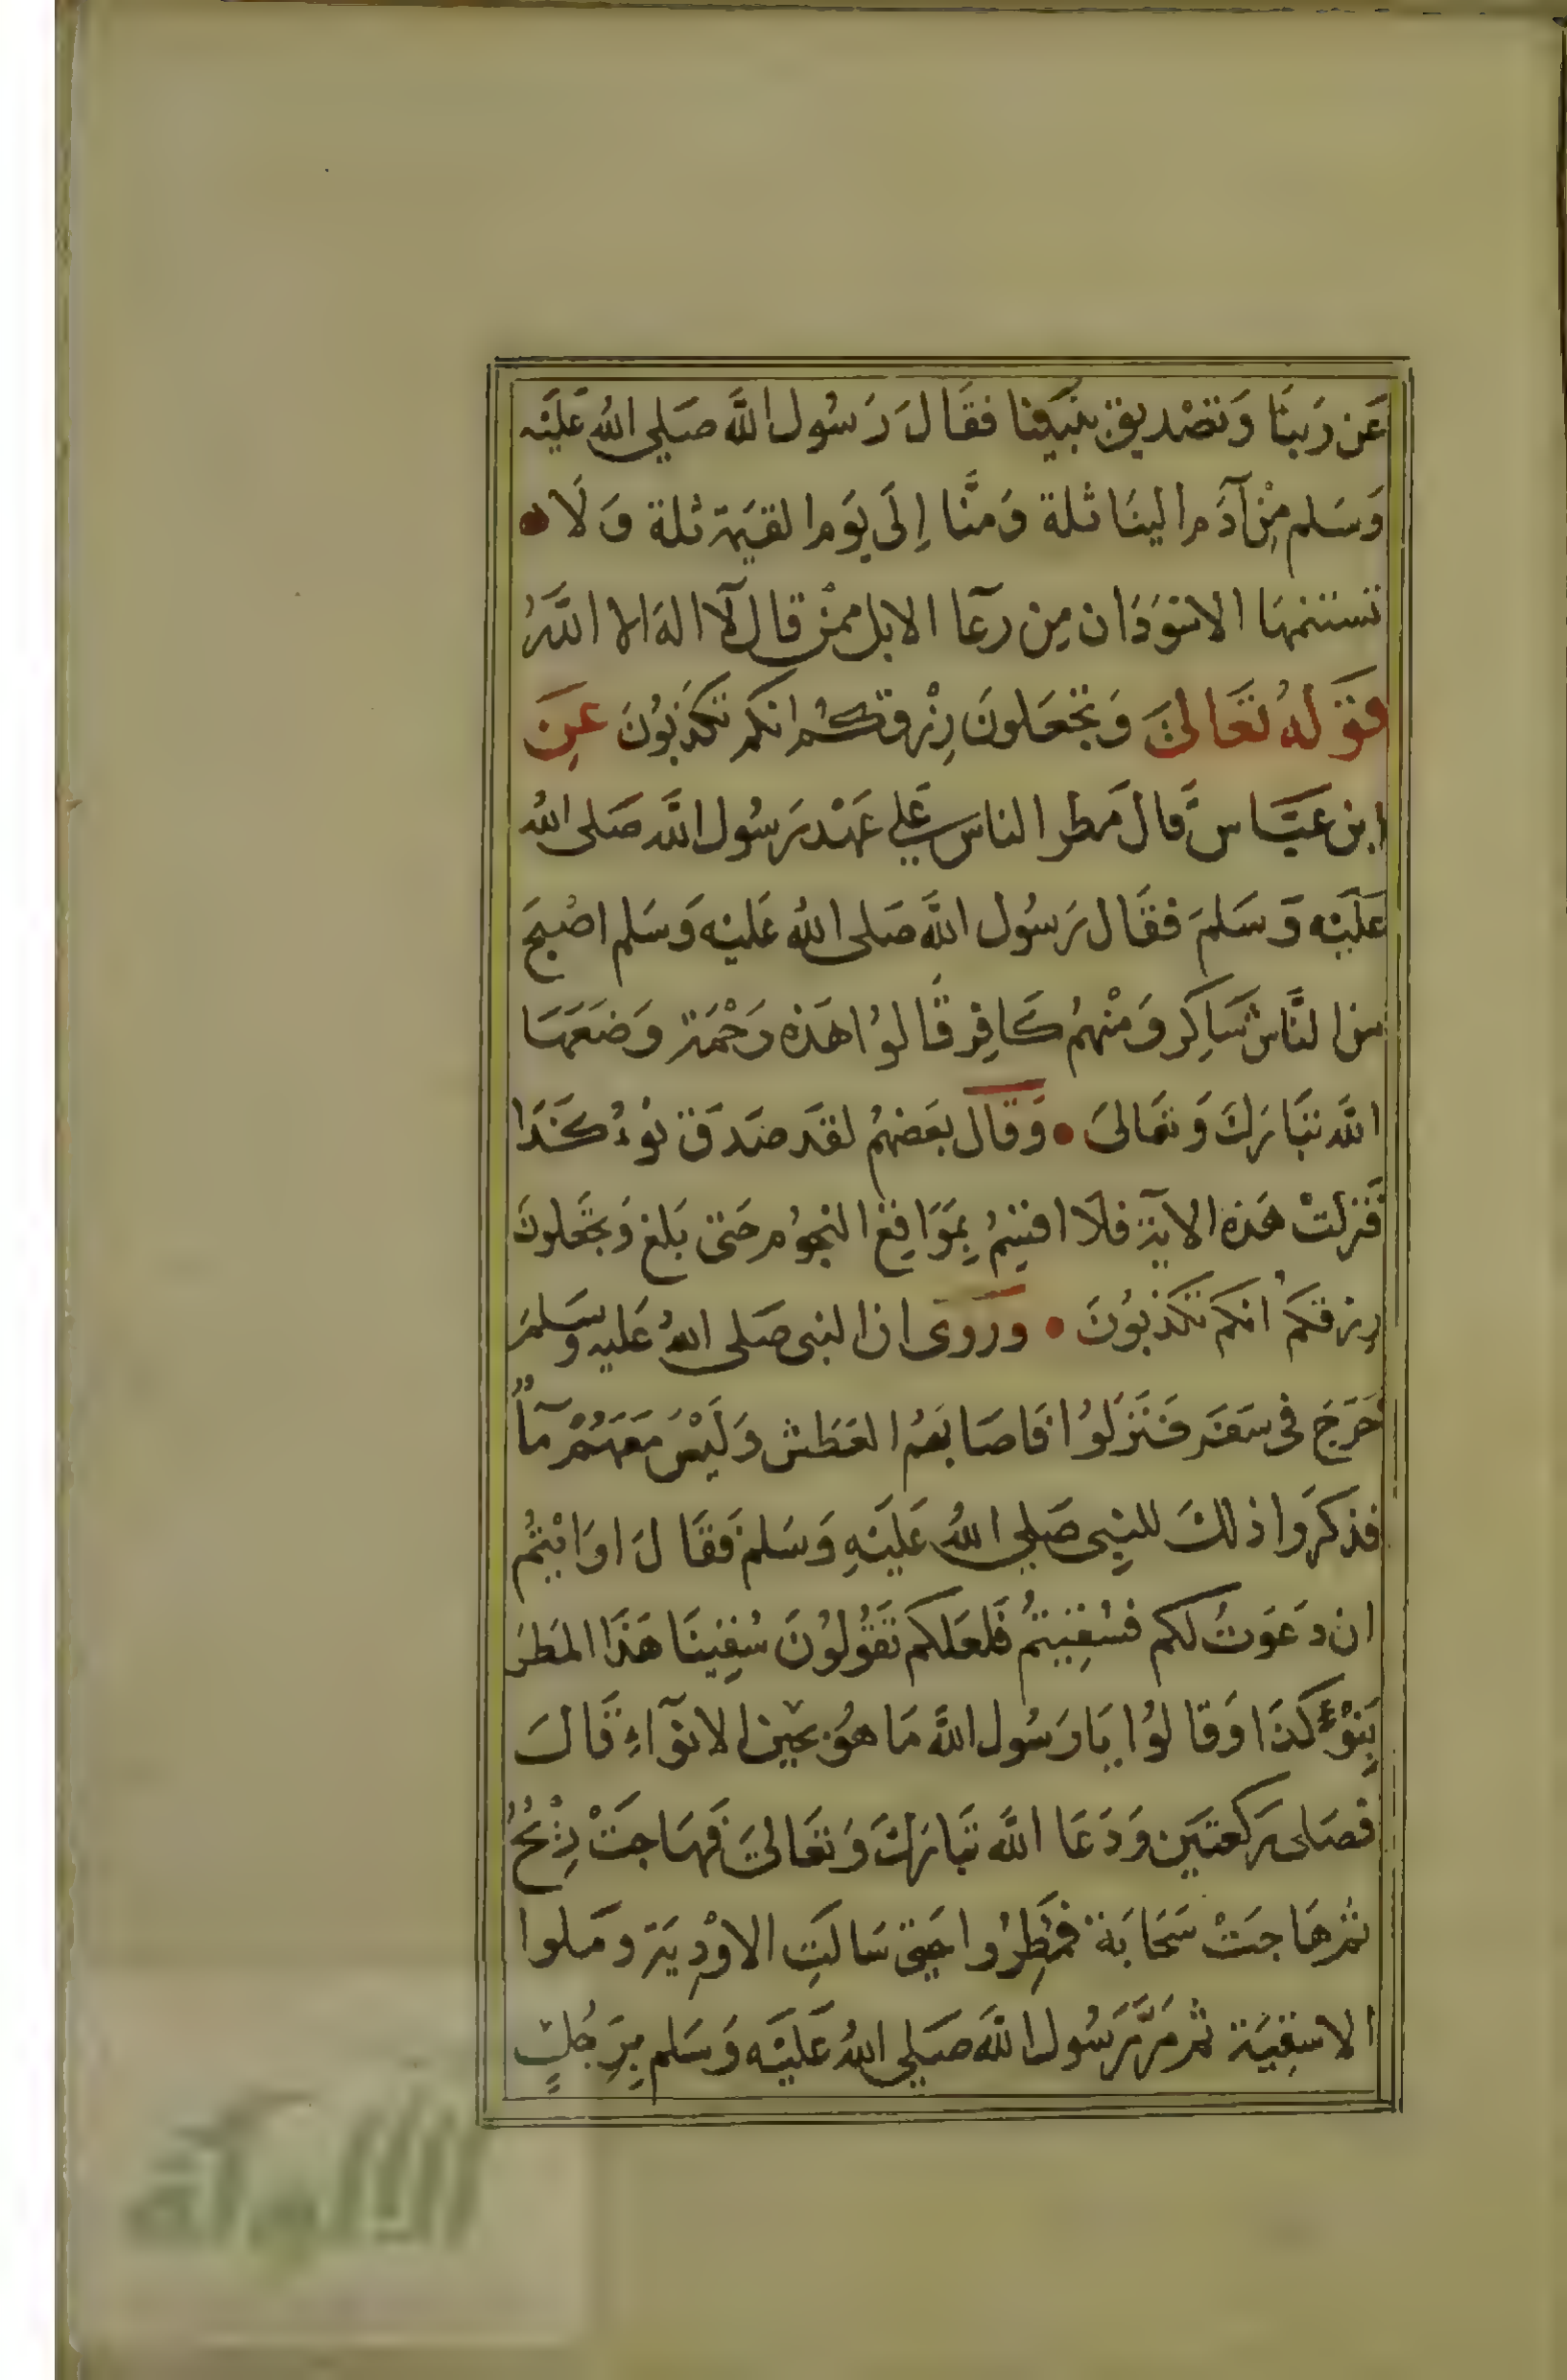 عَن رَبنَا وَتصْديق بنبينا فقَالَ رَسُول اللَّه صَلي اللهُ عَليْه
وَسَلم مِنْ آدَم الينَا ثلة وَمنَّا إِلَى يَوم القيٰمة ثلة وَلَا
تستتمهَا الا سَوَدَان مِن رعَا الابل ممنْ قال لَا اله الا اللَّهُ
قوَلهُ تعَالىَ وَتجْعَلونَ رِزْقكُم انكم تكَذبُونَ عَنِ
ابن عَبَّاس قَال مَطر الناس عَلي عَهْد رَسُول اللَّه صَلى اللهُ
عَلَيْه وَسَلمَ فقَال رَسُول اللَّه صَلى اللهُ عَليْه وَسَلم اصْبحَ
من النَّاس شَاكِر وَمنْهمُ كَافِر قَالوُا هَذه رَحْمَة وَضعَهَا
اللَّه تبَارَك وَتعَالىَ • وَقَال بعَضهُم لقد صَدَق نوْءُ كَذَا
فَنزلتْ هَذه الاية فلَا اقسِمُ بِمَوَاقِع النجوُم حَتى بَلغ وَتجْعَلونَ
رِزقكمُ أنكم تكَذبُونَ • وروى ان النبى صَلى اللهُ عَليه وَسَلمَ
خَرَجَ فى سَفَر فَنَزَلوُا فاصَابَهُم العَطَش وَلَيْسَ مَعَهُمْ مَآءٌ
فذكرَوا ذلكَ للنبِى صَلي اللهُ عَليْهِ وَسَلم فَقَالَ ارَايْتُم
ان دَعَوَتُ لكم فسُقِيتمُ فَلعَلكم تَقُولوُنَ سُقِينَا هَذَا المَطرَ
بِنوْءِ كذَا وَقالوُا يَا رَسُول اللَّه مَا هوُ بحين الانوَآءِ قَالَ
فصَلى رَكعتَين وَدَعَا اللَّه تبَارَكَ وَتَعَالىَ فَهَاجَتْ رِيْحٌ
ثمُ هَاجَتْ سَحَابَة فمُطِرُوا حَتى سَالَتِ الاوْدِيَة وَمَلوا
الاسقِيَة ثُم مَرَّ رَسُول اللَّه صَلي اللهُ عَليْه وَسَلم بِرَجُلٍ
الألوكة